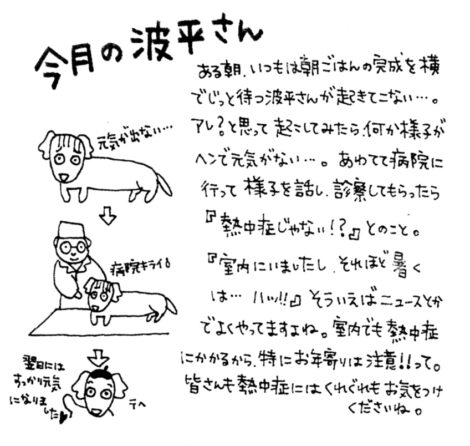 今月の波平さん
ある朝、いつもは朝ごはんの完成を横
でじっと待つ波平さんが起きてこない…。
アレ?と思って起こしてみたら、何か様子が
ヘンで元気がない…。あわてて病院に
行って様子を話し、診察してもらったら
『熱中症じゃない!?』とのこと。
『室内にいましたし、それほど暑く
は… ハッ!!』そういえばニュースとか
でよくやってますよね。室内でも熱中症
にかかるから、特にお年寄りは注意!!って。
皆さんも熱中症にはくれぐれもお気をつけ
くださいね。
元気が出ない…
病院キライ!
翌日には
すっかり元気
になりま
した♥
テヘ